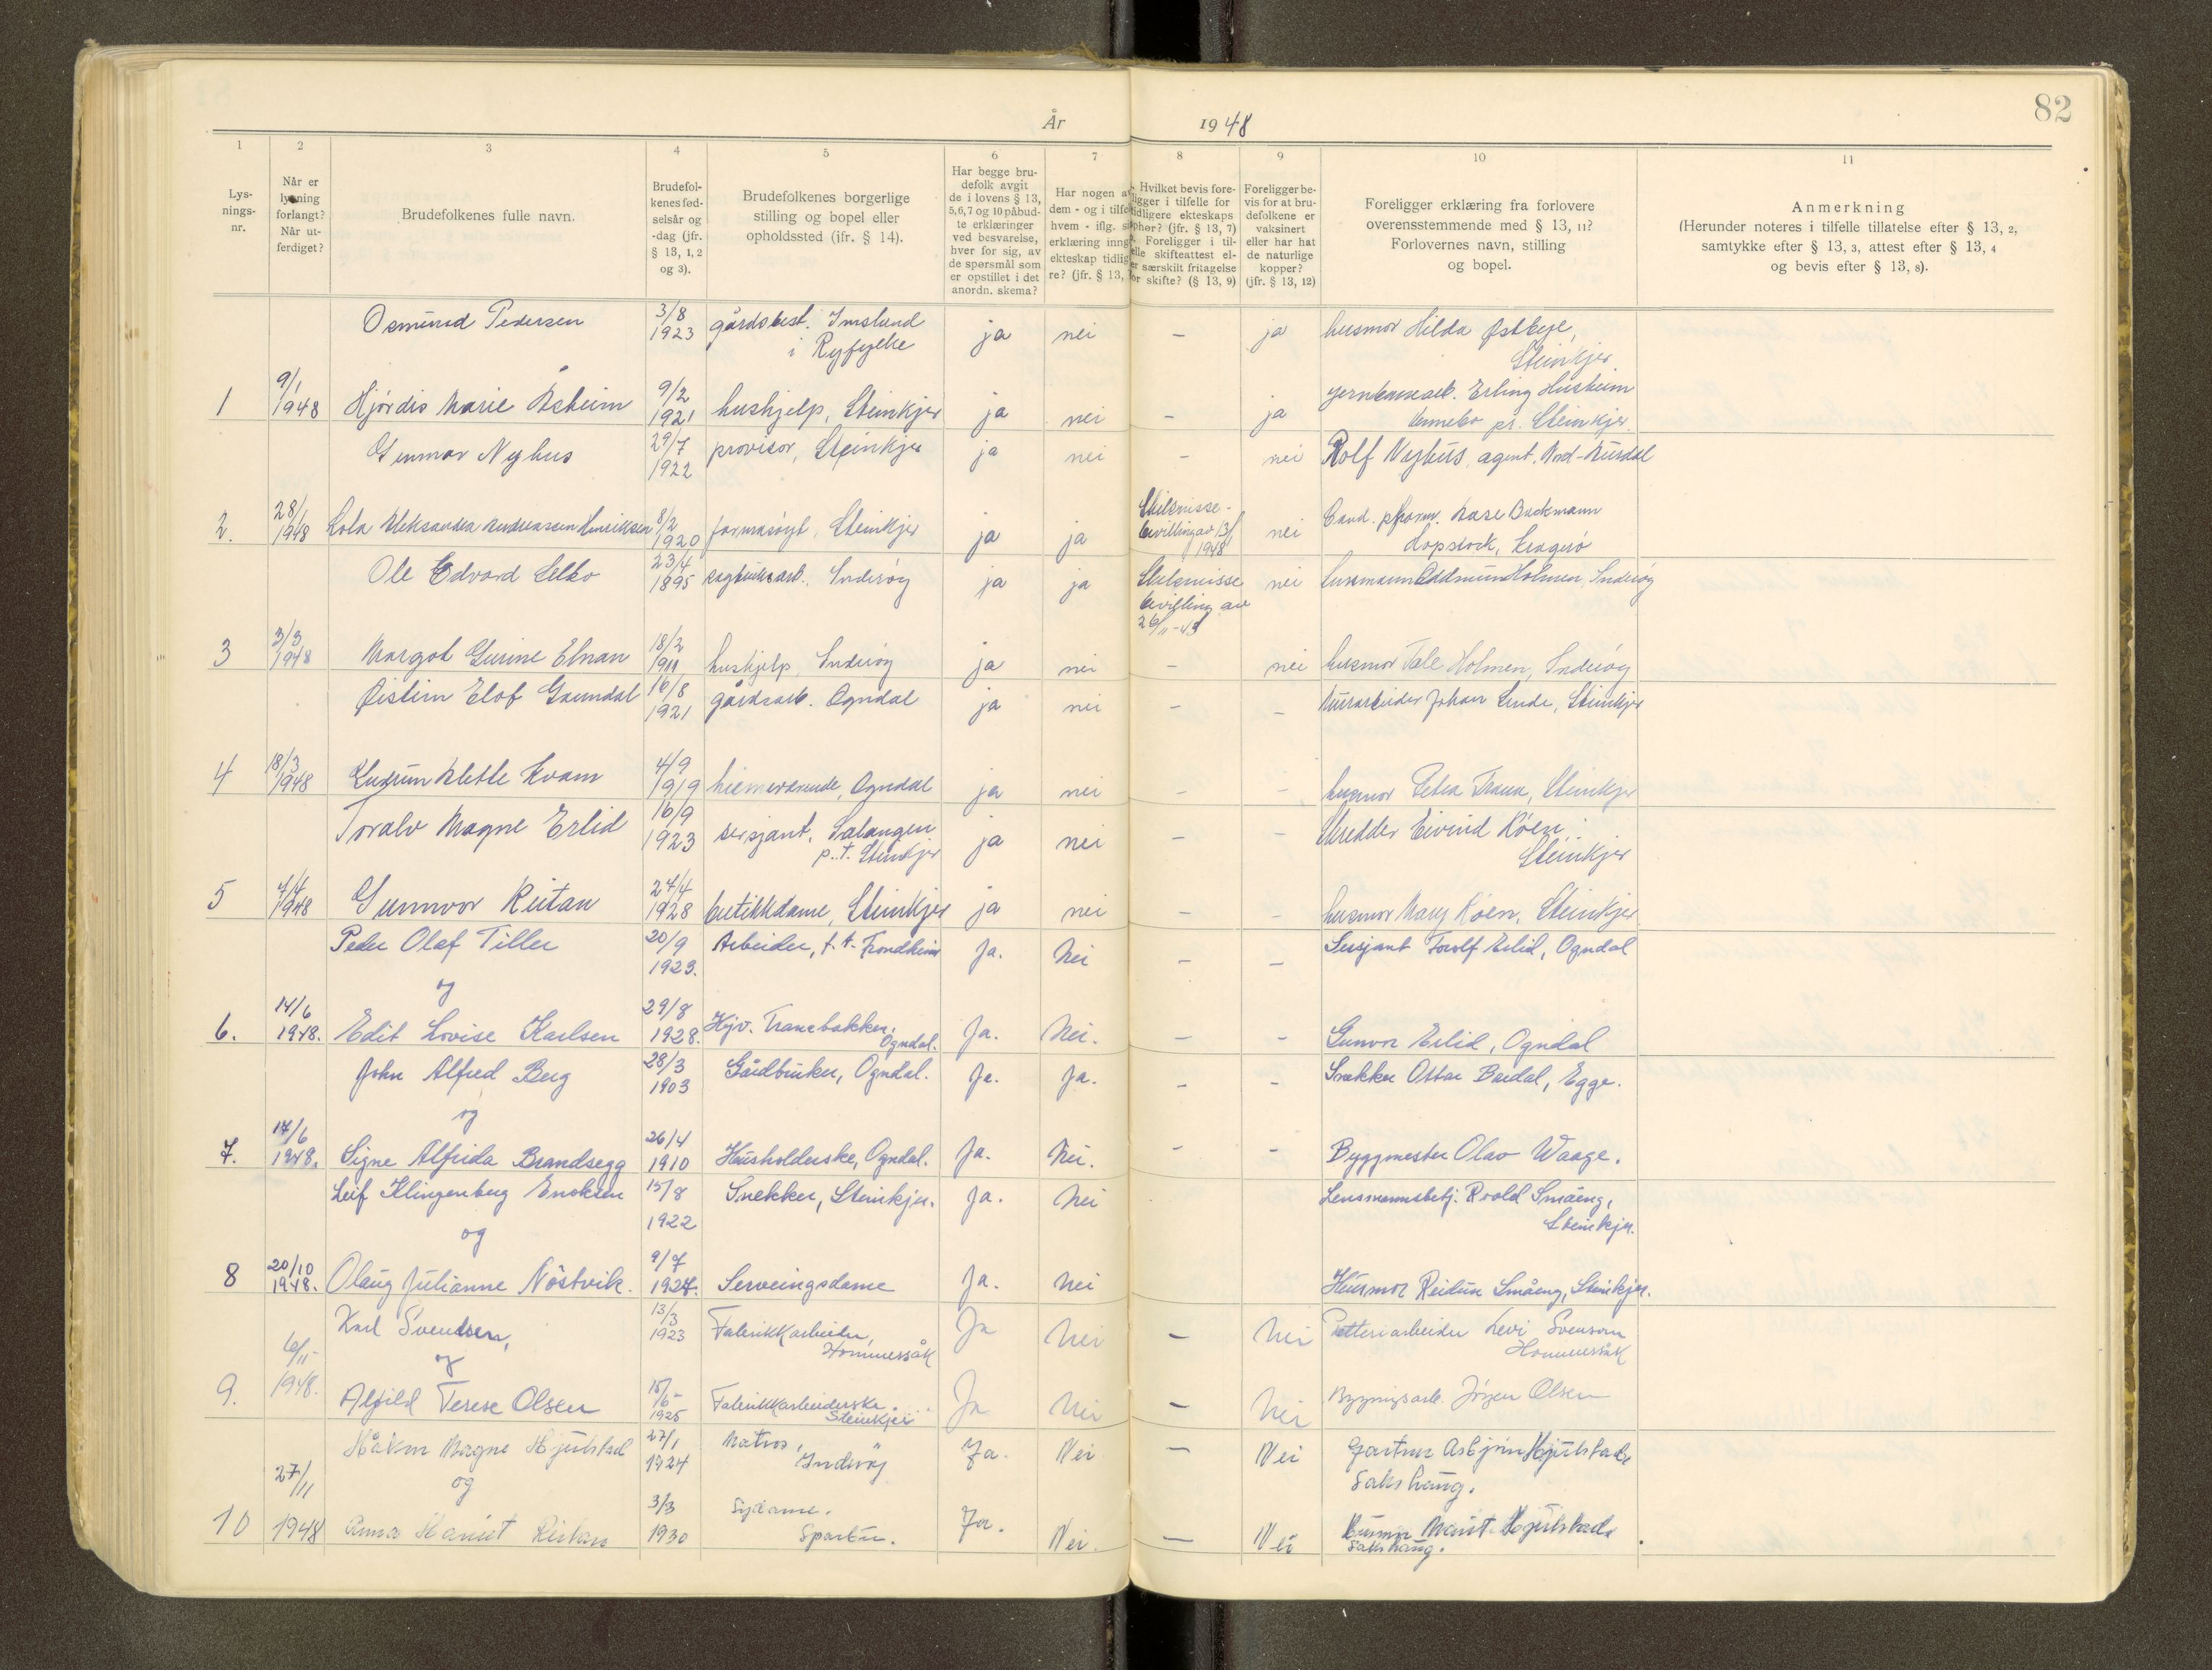 82
År 1948
1 2 3 4 5 6 7 8 9 10 11
Lys-
nings-
nr.
Når er
lysning
forlangt?
Når ut-
ferdiget?
Brudefolkenes fulle navn.
Brudefol-
kenes fød-
selsår og
-dag (jfr.
§ 13, 1, 2
og 3).
Brudefolkenes borgerlige
stilling og bopel eller
opholdssted (ifr. § 14).
Har begge bru-
defolk avgit
de i lovens § 13,
5,6,7 og 10 påbud-
te erklæringer
ved besvarelse,
hver for sig, av
de spørsmål som
er opstillet i det
anordn. skema?
Har nogen av
dem - og i tilfe
hvem - iflg.
erklæring inng
ekteskap tidlig
re? (jfr. § 13,
Hvilket bevis fore-
ligger i tilfelle for
tidligere ekteskaps
ophør? (jfr. § 13, 7)
Foreligger i til-
felle skifteattest el-
er særskilt fritagelse
for skifte? (§ 13, 9)
Foreligger be-
vis for at bru-
defolkene er
vaksinert
eller har hat
de naturlige
kopper?
(jfr. § 13, 12)
Foreligger erklæring fra forlovere
overensstemmende med § 13, 11?
Forlovernes navn, stilling
og bopel.
Anmerkning
(Herunder noteres i tilfelle tillatelse efter § 13, 2,
samtykke efter § 13, 3, attest efter § 13, 4
og bevis efter § 13, 8).
Osmund Pedersen 3/8 1923 gårdsbest. Imslund i Ryfylke ja nei – ja husmor Hilda Østbye, Steinkjer
1 9/1 1948 Hjørdis Marie Åsheim 9/2 1921 hushjelp, Steinkjer ja nei – ja Erling Husheim pr. Steinkjer.
Gunnar Nyhus 29/7 1922 provisor, Steinkjer ja nei – nei Rolf Nyhus, agent, Nord-Aurdal
2. 28/1 1948 Lola Aleksandra Andreassen Henriksen 8/2 1920 farmasøyt, Steinkjer ja ja Skilsmisse-bevilling av 13/1 1948 nei Cand. pharm. Aase Backmann Kragerø
Ole Edvard 23/4 1895 sagbruksarb. Inderøy ja ja Skilsmisse bevilling av 26/11-43 nei Oddmund Holmen, Inderøy
3 3/3 1948 Margot Gurine Elnan 18/2 1911 hushjelp, Inderøy ja nei – nei husmor Tale Holmen, Inderøy
Øistein Elof 16/8 1921 gårdsarb. Ogndal ja nei – – Murarbeider Johan Linde, Steinkjer
4 18/3 1948 Gudrun Alette Kvam 4/9 1919 hjemværende, Ogndal ja nei – – husmor Petra Trana, Steinkjer
Toralv Magne Erlid 16/9 1923 sersjant, Salangen p.t. Steinkjer ja nei – – Skredder Eivind Røen, Steinkjer
5 7/4 1948 Gunnvor Reitan 24/4 1928 butikkdame, Steinkjer ja nei – – husmor Mary Røen, Steinkjer
Peder Olaf Tiller 20/9 1923. Arbeider, p.t. Trondheim Ja. Nei – – Sersjant Torolf Erlid, Ogndal
og
6. 14/6 1948. Edit Lovise Karlsen 29/8 1928. Hjv. Tranebakken, Ogndal. Ja. Nei. – – Gunvor Erlid, Ogndal
John Alfred Berg 28/3 1903 Gårdbruker, Ogndal. Ja. Ja. – – Snekker Ottar Bardal, Egge.
og
7. 14/6 1948. Signe Alfrida Brandsegg 26/4 1910 Husholderske, Ogndal. Ja. Nei. – – Byggmester Olav Waage.
Leif Klingenberg Enoksen 15/8 1922 Snekker, Steinkjer. Ja. Nei Lensmannsbetj. Roald Småeng, Steinkjer.
og
8 20/10 1948. Olaug Julianne Nöstvik. 9/7 1927. Serveringsdame Ja. Nei Husmor Reidun Småeng, Steinkjer.
Karl Svendsen, 13/3 1923 Fabrikkarbeider, Hommersåk Ja Nei – Nei Potteriarbeider Levi Svenson Hommersåk
og
9. 6/11- 1948. Alfild Terese Olsen 15/6- 1925 Fabrikkarbeiderske. Steinkjer Ja Nei – Nei Bygningsarb. Jörgen Olsen
Håkon Magne Hjulstad 27/1 1924 Matros, Inderöy Ja. Nei – Nei Gartner Asbjörn Hjulstad Sakshaug.
og
10 27/11 1948 Anna Harriet Reitan 3/3 1930 Sydame. Sparbu. Ja. Nei. – Nei Husmor Marit Hjulstad Sakshaug.